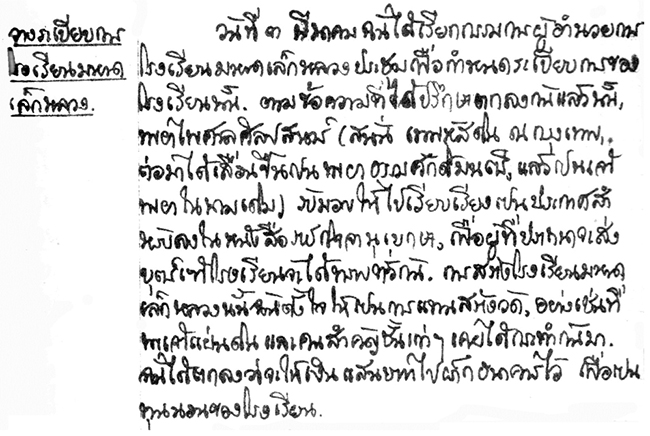 วางระเบียบการ
โรงเรียนมหาด
เล็กหลวง.
วันที่ ๓ มีนาคม ฉันได้เรียกกรรมการผู้อำนวยการ
โรงเรียนมหาดเล็กหลวงประชุมเพื่อกำหนดระเบียบการของ
โรงเรียนนี้. ตามข้อความที่ได้ปรึกษาตกลงกันแล้วนี้,
พญาไพศาลศิลปสาตร์ (สนั่น เทพหัสดิน ณกรุงเทพ,
ต่อมาได้เลื่อนขึ้นเป็นพญาธรรมศักดิ์มนตรี, แล้วเป็นเจ้า
พญาในนามเดิม) รับมอบให้ไปเรียบเรียงเป็นประกาศสำ
หรับลงในหนังสือราชกิจจานุเบกษา, เพื่อผู้ที่ปราถนาจะส่ง
บุตร์เข้าโรงเรียนจะได้ทราบทั่วกัน. การสร้างโรงเรียนมหาด
เล็กหลวงนั้นฉันตั้งใจให้เป็นการแทนสร้างวัด, อย่างเช่นที่
พระเจ้าแผ่นดินและคนสำคัญชั้นเก่าๆ เคยได้กระทำกันมา.
ฉันได้ตกลงว่าจะให้เงินแสนบาทไปฝากธนาคารไว้ เพื่อเป็น
ทุนนอนของโรงเรียน.